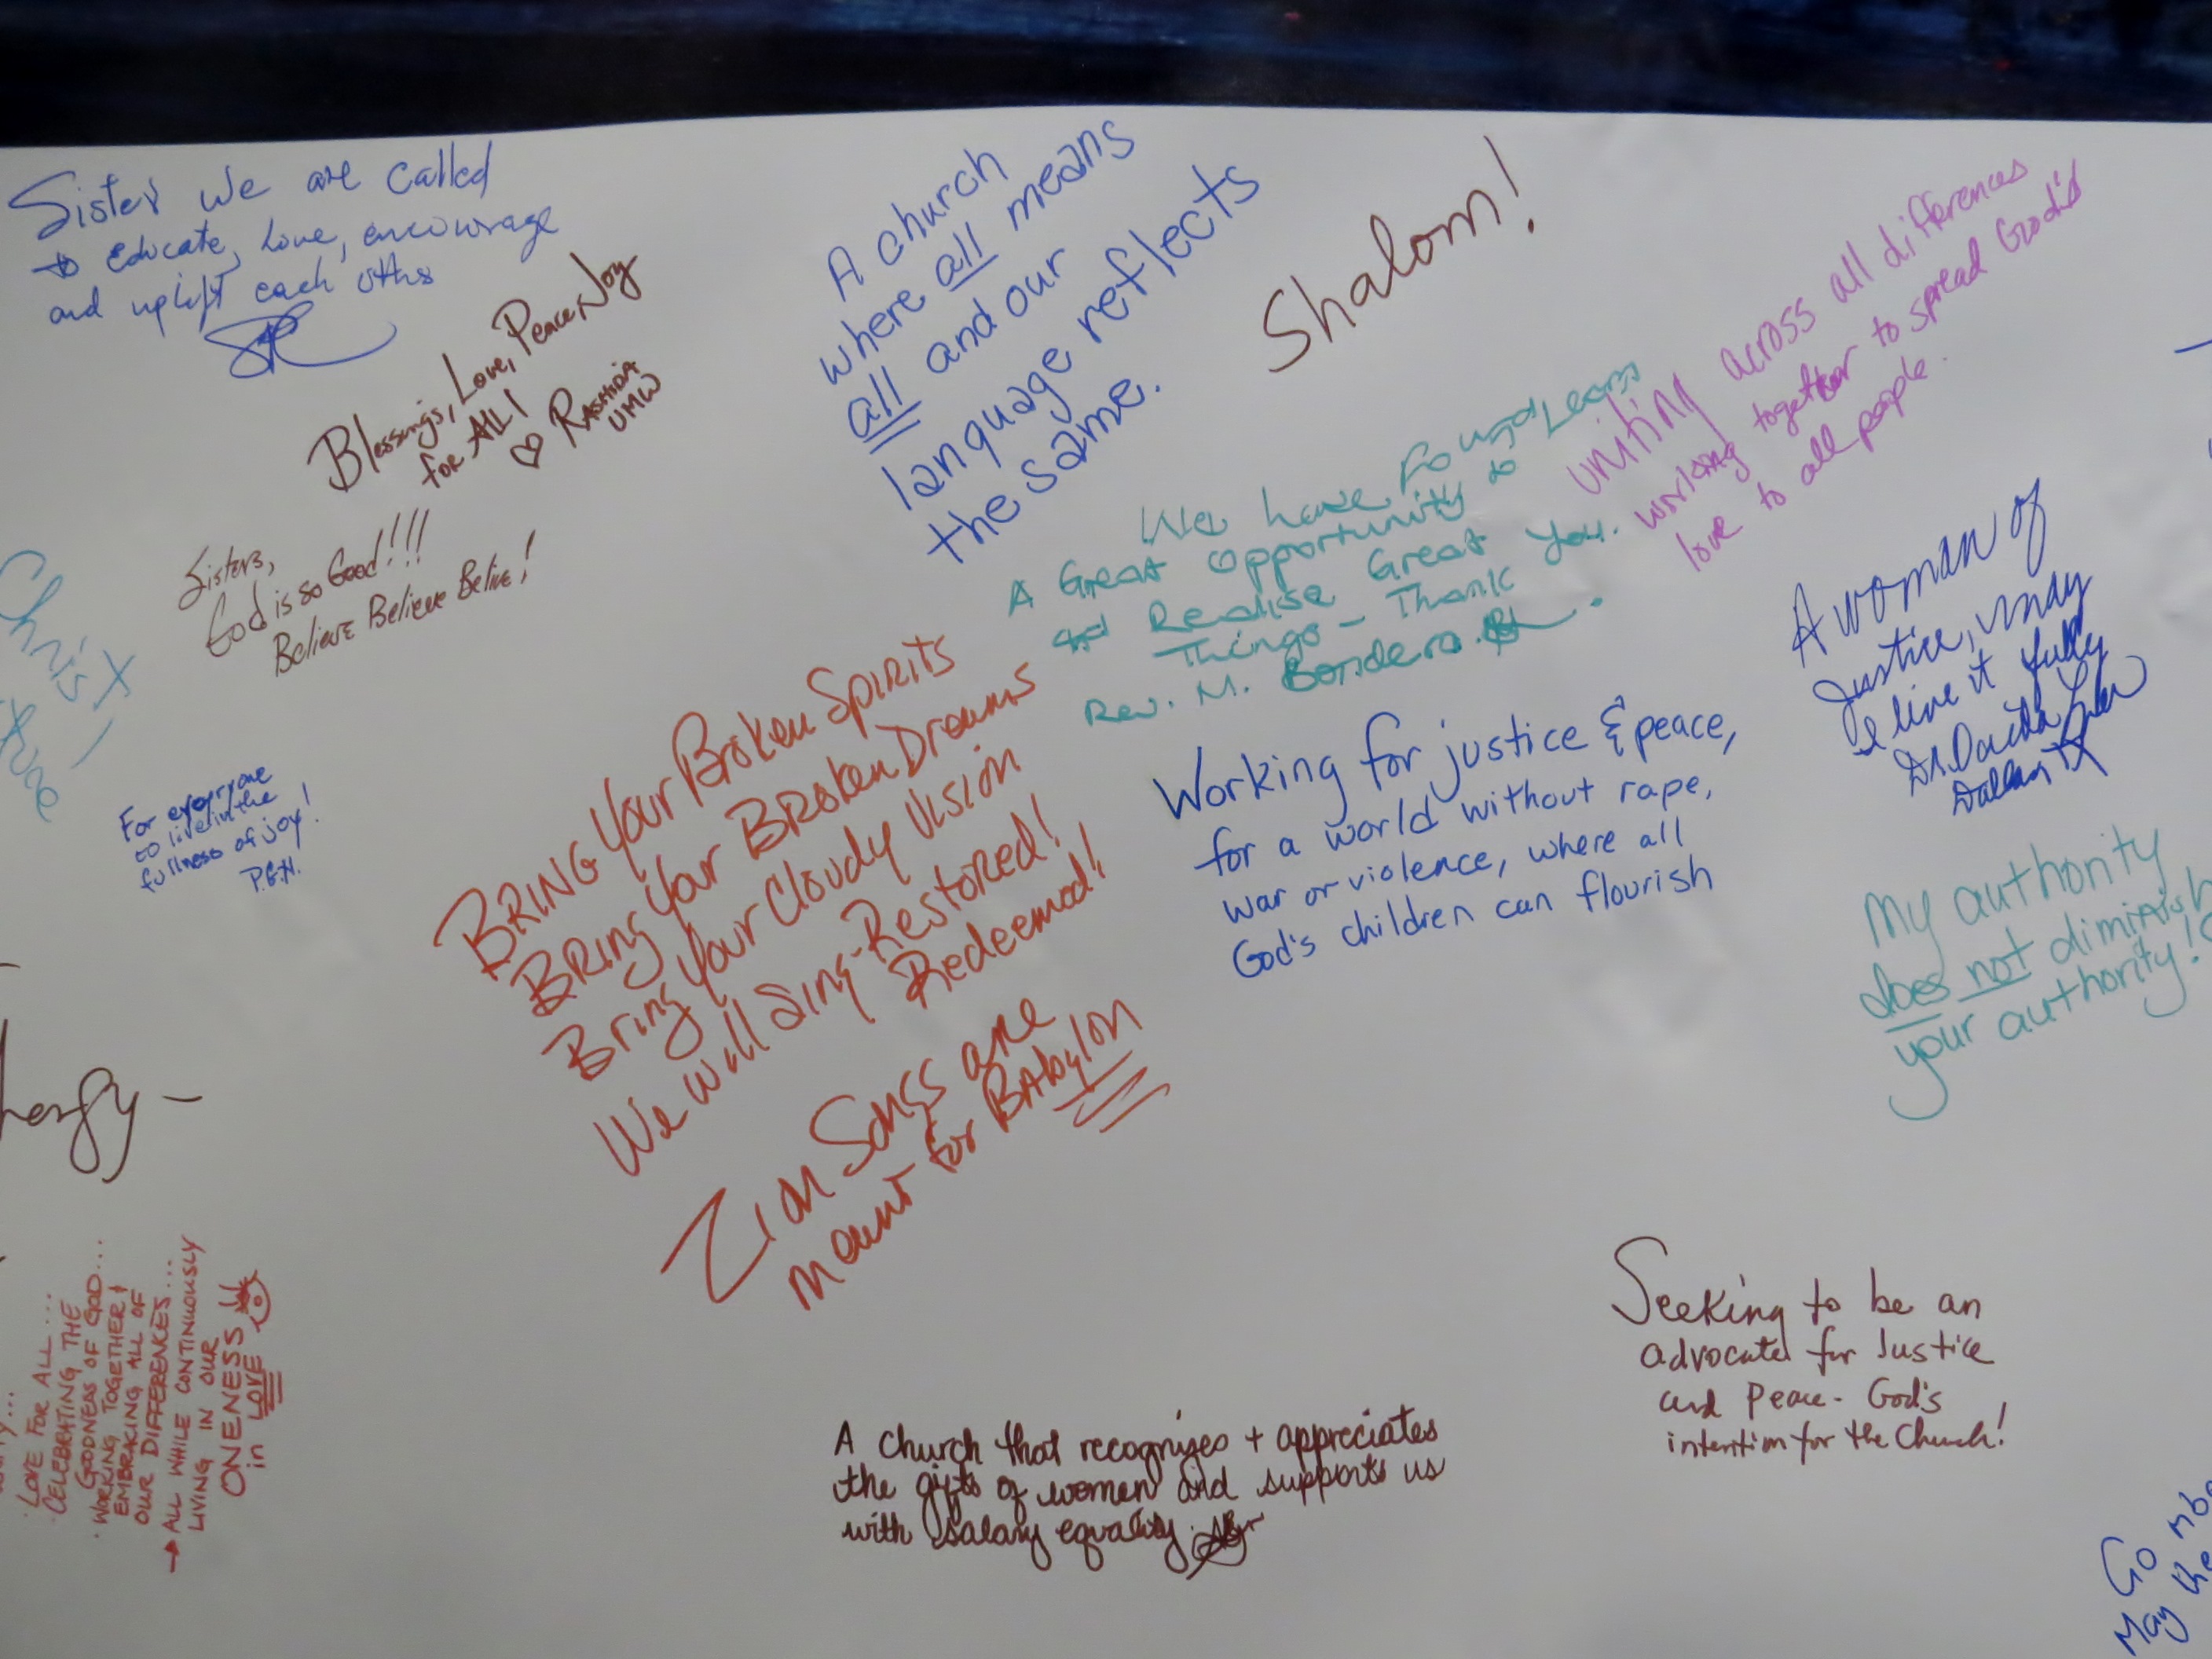 Sisters we are called
to educate, love, encourage
and uplift each others
Blessings, Love, Peace, Joy
for ALL!
♡ Rashida
UMW
A church
where all means
all and our
language reflects
the same.
Shalom!
uniting across all differences
working together to spread God's
love to all people.
We have Found
A Great Opportunity to Learn
and Realise Great
Things - Thank You.
Rev. M. Bonders.
Sisters,
God is so Good!!!
Believe Believe Belive!
Christ
A woman of
Justice, may
I live it fully
Dallas TX
For everyone
to live in the
fullness of joy!
P.G.H.
BRING Your Broken Spirits
BRing Your BRoken Dreams
Bring Your Cloudy Vision
We Will Sing-Restored!
Redeemed!
Zion Songs are
meant for BAbylon
Working for justice & peace,
for a world without rape,
war or violence, where all
God's children can flourish
My authority
does not diminish
your authority!
· LOVE FOR ALL...
· CELEBRATING THE
GOODNESS OF GOD...
· WORKING TOGETHER!
EMBRACING ALL OF
OUR DIFFERENCES...
→ ALL WHILE CONTINUOUSLY
LIVING IN OUR
ONENESS
in LOVE
Seeking to be an
advocate for Justice
and Peace - God's
intention for the Church!
A church that recognizes + appreciates
the gifts of women and supports us
with salary equality.
Go
May the